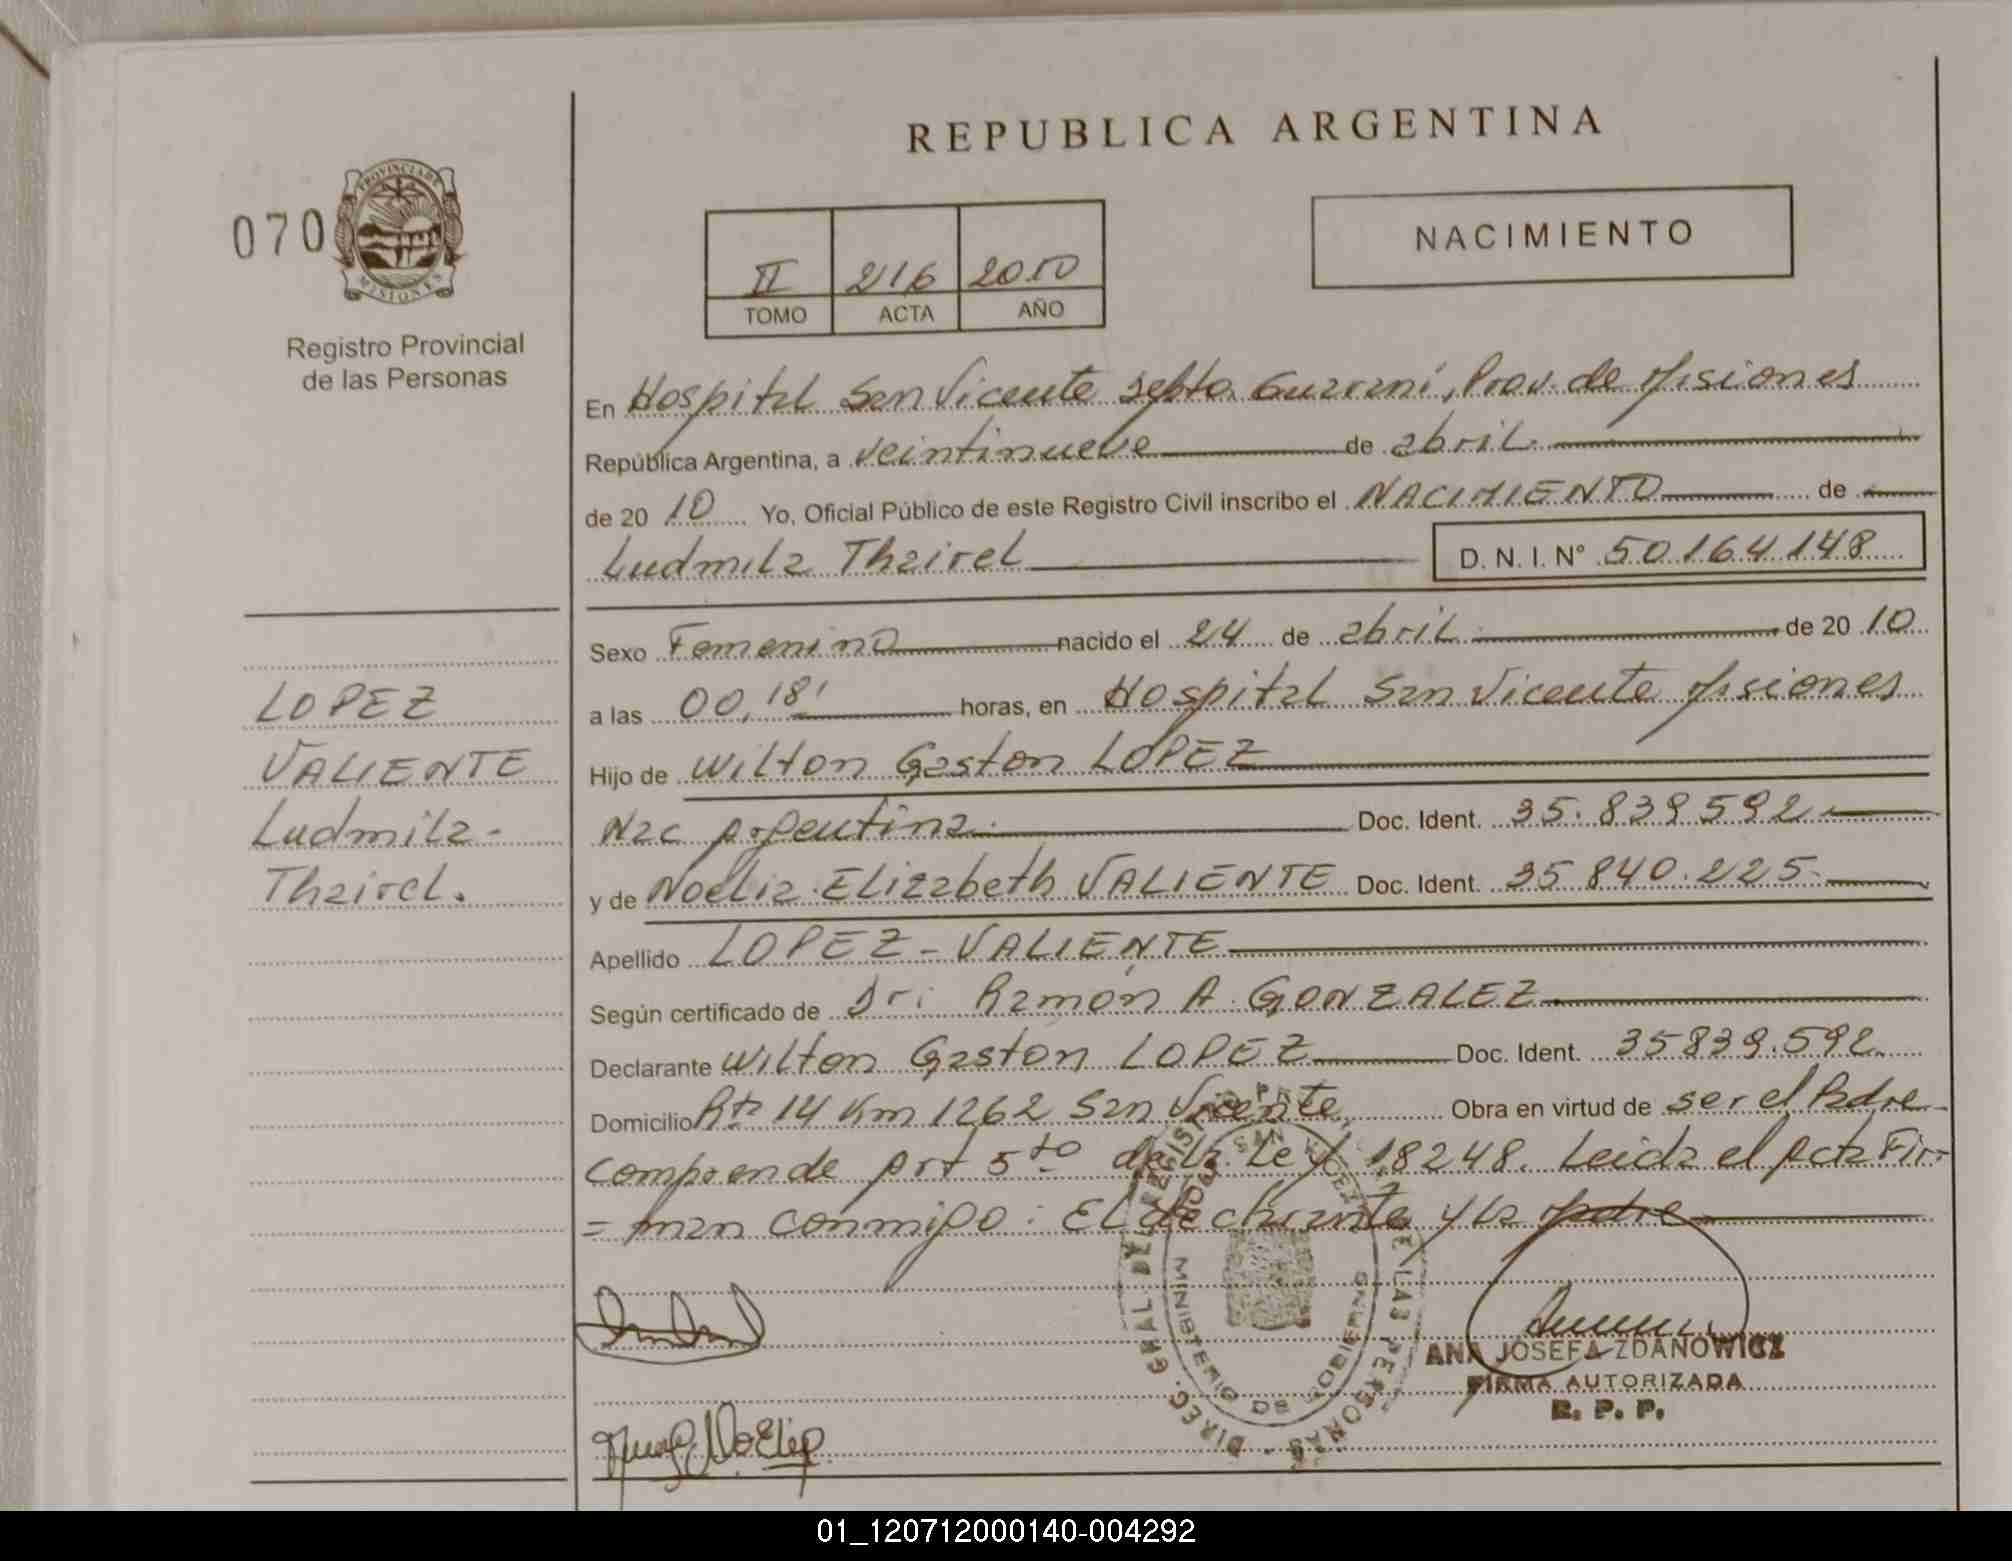 REPUBLICA ARGENTINA
070
PROVINCIA DE
MISIONES
Registro Provincial
de las Personas
II 216 2010
TOMO ACTA AÑO
NACIMIENTO
En Hospital San Vicente Depto. Guaraní, Prov. de Misiones
República Argentina, a veintinueve de abril
de 20 10 Yo, Oficial Público de este Registro Civil inscribo el NACIMIENTO de
Ludmila Thairel D. N. I. Nº 50.164.148
Sexo Femenino nacido el 24 de abril de 20 10
a las 00,18' horas, en Hospital San Vicente Misiones
Hijo de Wilton Gaston LOPEZ
Nac Argentina. Doc. Ident. 35.839.592
y de Noelia Elizabeth VALIENTE Doc. Ident. 35 840.225
Apellido LOPEZ - VALIENTE
Según certificado de Dr: Ramón A. GONZALEZ
Declarante Wilton Gaston LOPEZ Doc. Ident. 35839.592
Domicilio Rta 14 Km 1262 San Vicente, Obra en virtud de ser el Padre
Comprende Art 5to de la Ley 18248. Leida el Acta Fir-
= man conmigo: El declarante y la Madre
LOPEZ
VALIENTE
Ludmila -
Thairel.
DIREC. GRAL. DEL REGISTRO DE LAS PERSONAS
MINISTERIO DE GOBIERNO
SAN VICENTE
Noelia
ANA JOSEFA ZDANOWICZ
FIRMA AUTORIZADA
R. P. P.
01_120712000140-004292